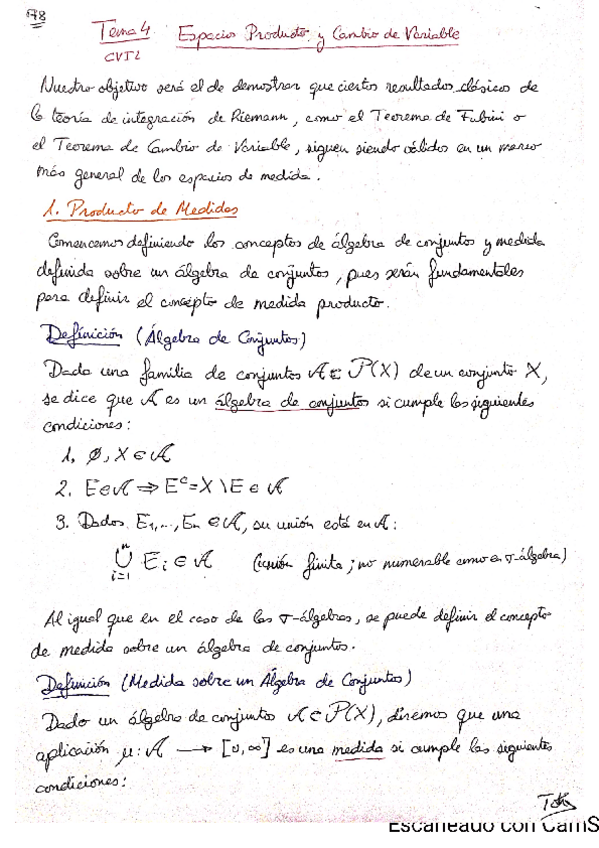 78
Tema 4 Espacio Producto y Cambio de Variable
CVI2
Nuestro objetivo será el de demostrar que ciertos resultados clásicos de
la teoría de integración de Riemann, como el Teorema de Fubini o
el Teorema de Cambio de Variable, siguen siendo válidos en un marco
más general de los espacios de medida.
1. Producto de Medidas
Comencemos definiendo los conceptos de álgebra de conjuntos y medida
definida sobre un álgebra de conjuntos, pues serán fundamentales
para definir el concepto de medida producto.
Definición (Álgebra de Conjuntos)
Dada una familia de conjuntos A ⊂ P(X) de un conjunto X,
se dice que A es un álgebra de conjuntos si cumple las siguientes
condiciones:
1. ∅, X ∈ A
2. E ∈ A ⇒ Eᶜ = X \ E ∈ A
3. Dados E₁, ..., Eₙ ∈ A, su unión está en A:
⋃ᵢ₌₁ⁿ Eᵢ ∈ A (unión finita; no numerable como en σ-álgebra)
Al igual que en el caso de las σ-álgebras, se puede definir el concepto
de medida sobre un álgebra de conjuntos.
Definición (Medida sobre un Álgebra de Conjuntos)
Dado un álgebra de conjuntos A ⊂ P(X), diremos que una
aplicación μ: A → [0, ∞] es una medida si cumple las siguientes
condiciones:
Escaneado con CamS